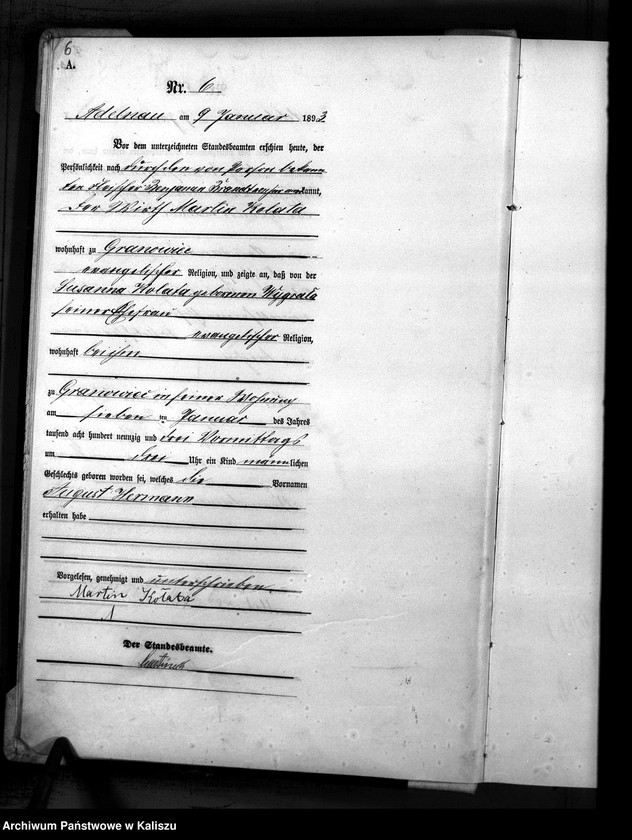 6
A.
Nr. 6
Adelnau am 9 Januar 1893
Vor dem unterzeichneten Standesbeamten erschien heute, der
Persönlichkeit nach durch den von Person bekann
ten Fleischer Benjamin anerkannt,
der Wirth Martin Kolata
wohnhaft zu Granowiec
evangelischer Religion, und zeigte an, daß von der
Susanna Kolata geborenen Wygrala
seiner Ehefrau
evangelischer Religion,
wohnhaft bei ihm
zu Granowiec in seiner Wohnung
am sieben ten Januar des Jahres
tausend acht hundert neunzig und drei Vormittags
um drei Uhr ein Kind männlichen
Geschlechts geboren worden sei, welches die Vornamen
August Hermann
erhalten habe
Vorgelesen, genehmigt und unterschrieben.
Martin Kołata
Der Standesbeamte.
Archiwum Państwowe w Kaliszu